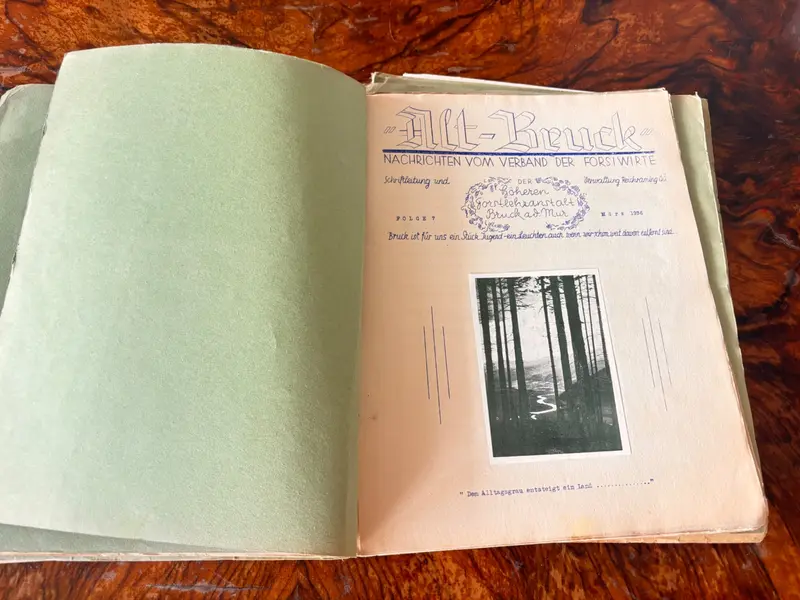 "Alt-Bruck"
NACHRICHTEN VOM VERBAND DER FORSTWIRTE
Schriftleitung und
DER
Höheren
Forstlehranstalt
Bruck a.d. Mur
Verwaltung Reichraming OÖ
FOLGE 7
März 1936
Bruck ist für uns ein Stück Jugend - ein Leuchten auch wenn wir schon weit davon entfernt sind.
" Dem Alltagsgrau entsteigt ein Land .............."